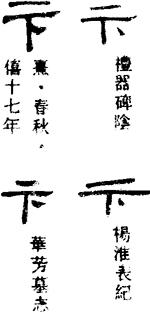 卞
禮器碑陰
卞
楊淮表紀
卞
熹·春秋·
僖十七年
卞
華芳墓志